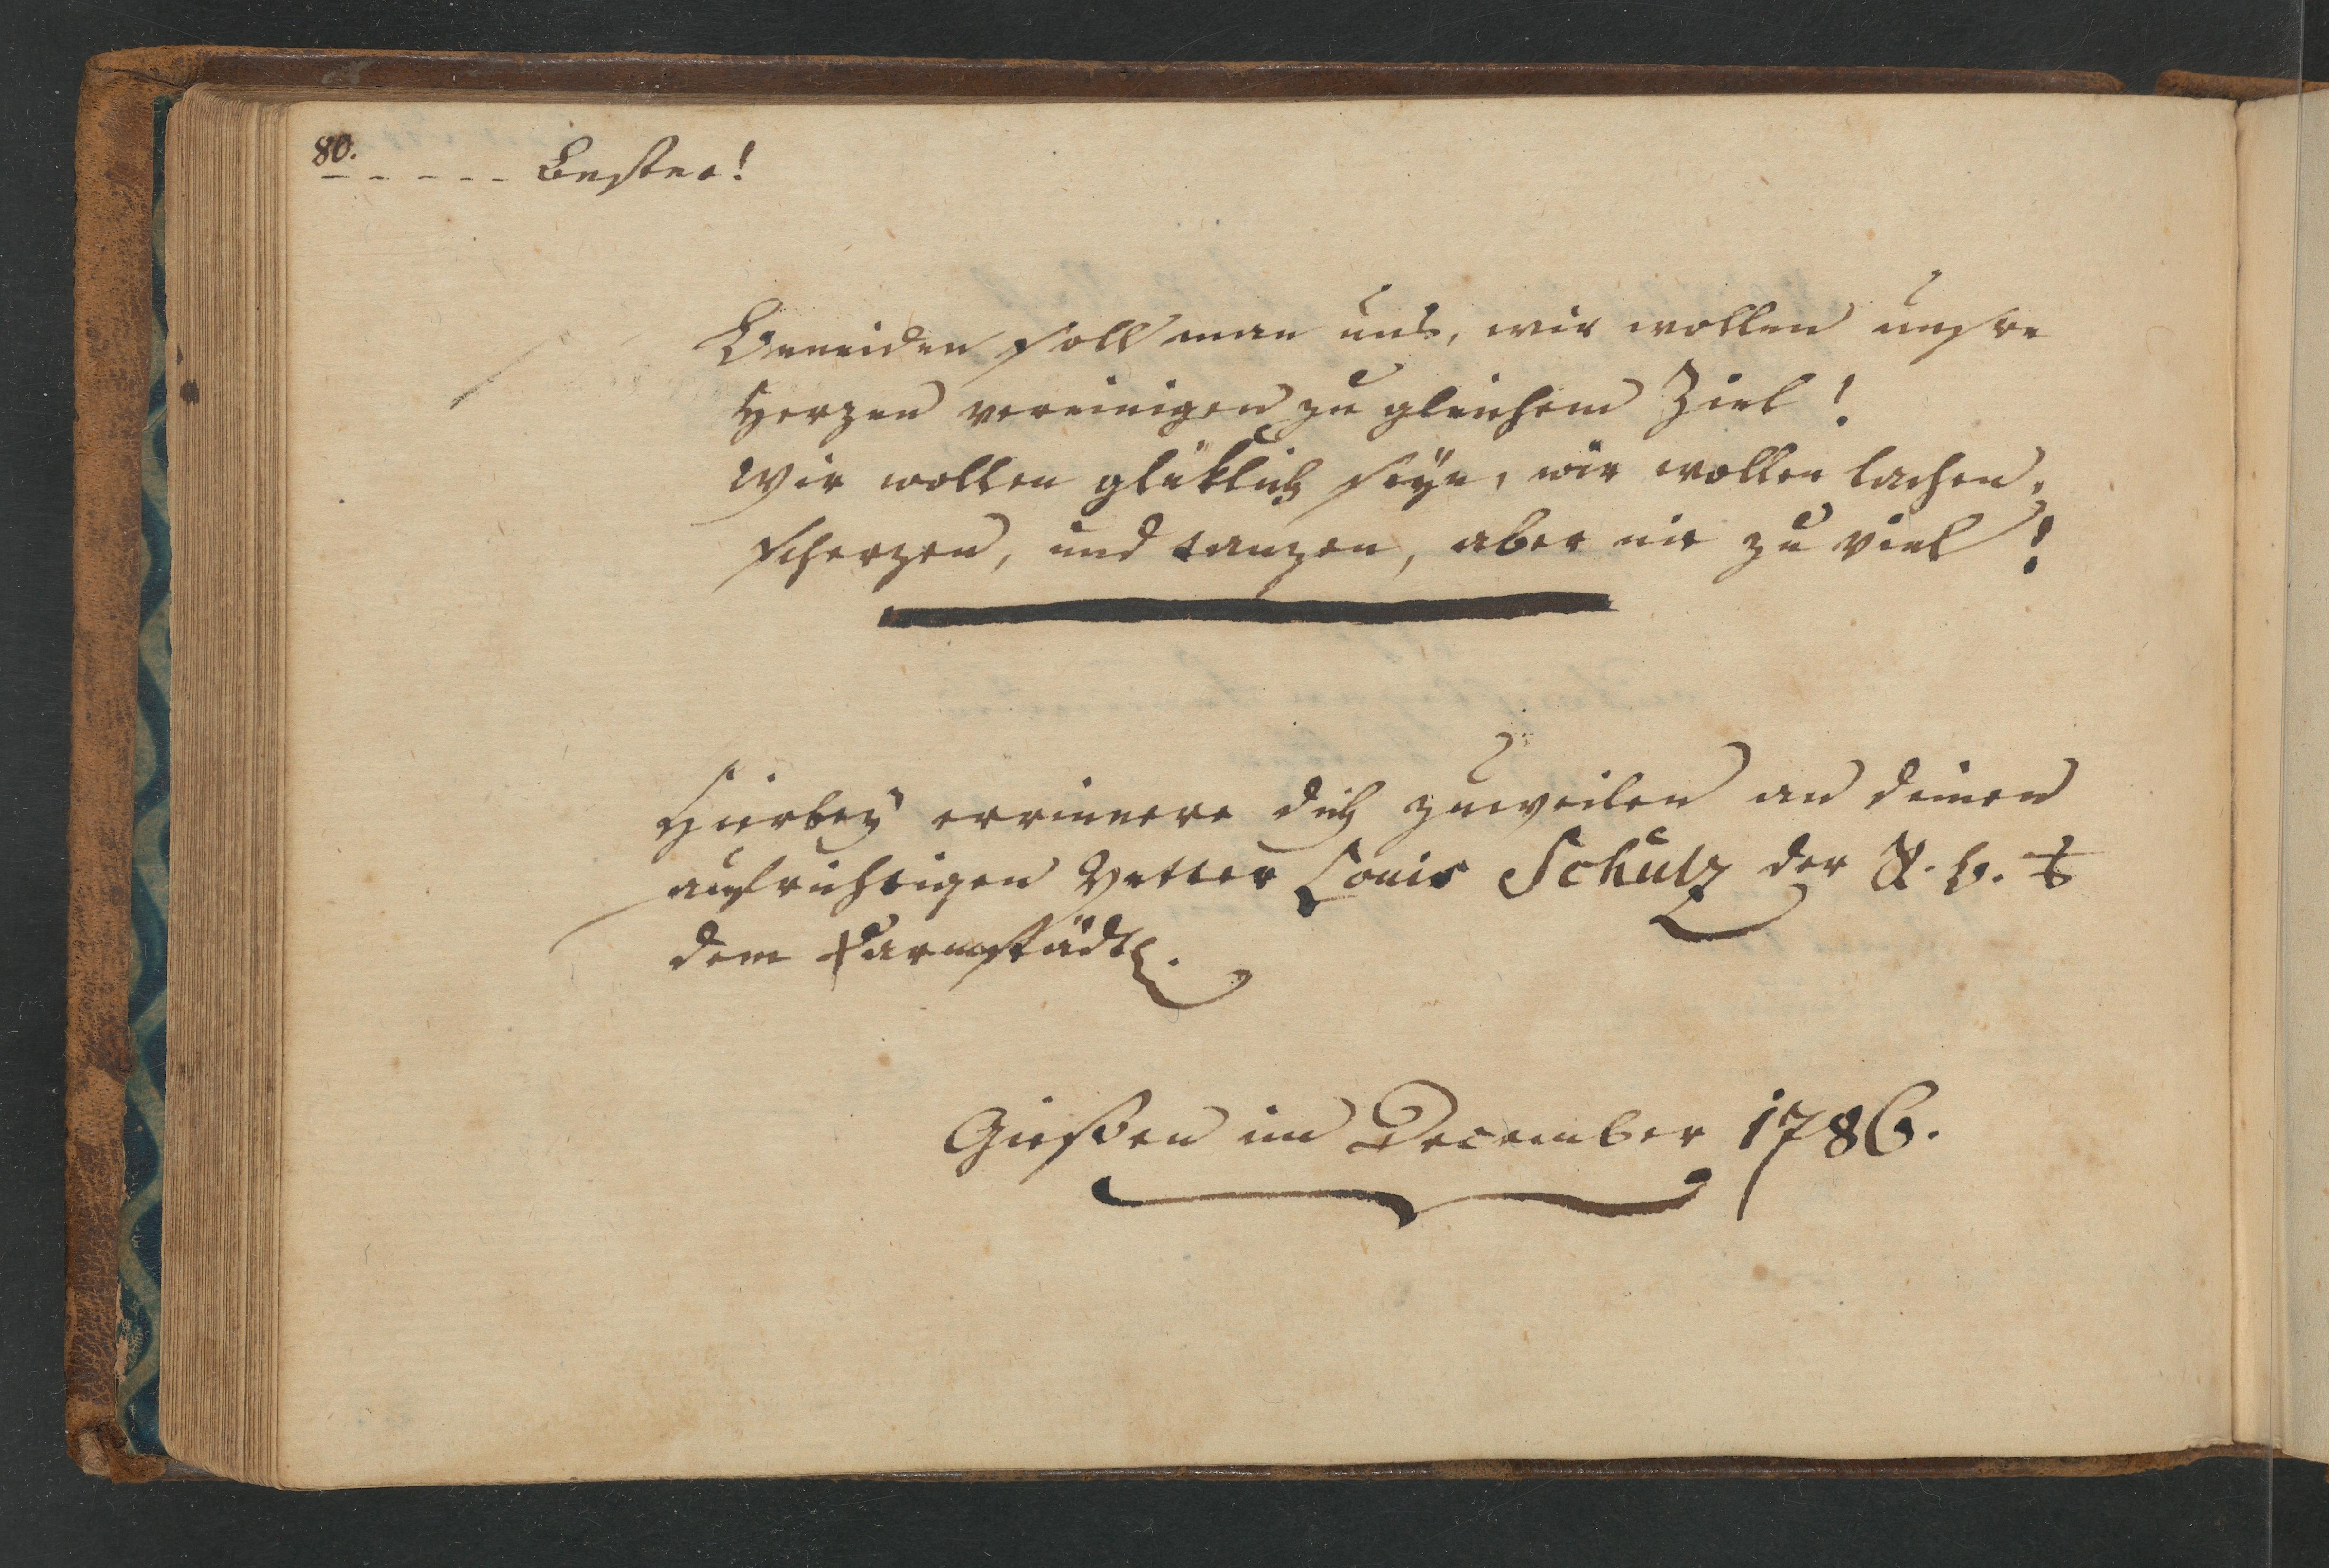 80.
- - - - - Bester!
Beneiden soll man uns, wir wollen unsre
Herzen vereinigen zu gleichem Ziel!
Wir wollen glüklich seyn, wir wollen lachen,
scherzen, und tanzen, aber nie zu viel!
Hierbey errinnere dich zuweilen an deinen
aufrichtigen Vetter Louis Schulz der
dem Darmstädtl.
Giessen im December 1786.